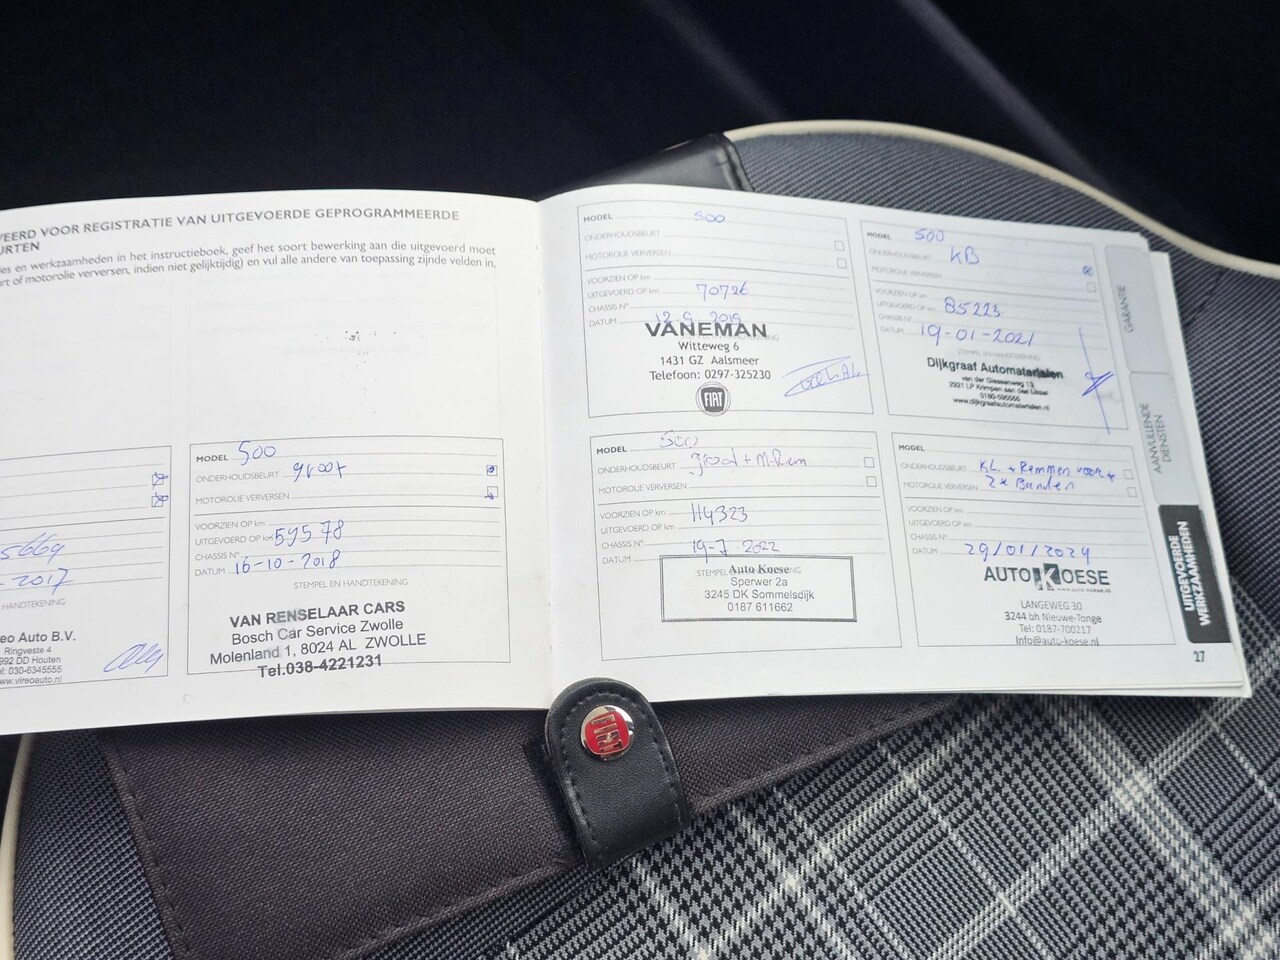 VEERD VOOR REGISTRATIE VAN UITGEVOERDE GEPROGRAMMEERDE
URTEN
ies en werkzaamheden in het instructieboek, geef het soort bewerking aan die uitgevoerd moet
rt of motorolie verversen, indien niet gelijktijdig) en vul alle andere van toepassing zijnde velden in.
5669
-2017
HANDTEKENING
reo Auto B.V.
Ringveste 4
992 DD Houten
el: 030-6345555
www.vireoauto.nl
MODEL 500
ONDERHOUDSBEURT groot
MOTOROLIE VERVERSEN
VOORZIEN OP km
UITGEVOERD OP km 59578
CHASSIS N°
DATUM 16-10-2018
STEMPEL EN HANDTEKENING
VAN RENSELAAR CARS
Bosch Car Service Zwolle
Molenland 1, 8024 AL ZWOLLE
Tel.038-4221231
MODEL 500
ONDERHOUDSBEURT
MOTOROLIE VERVERSEN
VOORZIEN OP km
UITGEVOERD OP km 70726
CHASSIS N°
DATUM 12-9-2019
VANEMAN
Witteweg 6
1431 GZ Aalsmeer
Telefoon: 0297-325230
FIAT
MODEL 500
ONDERHOUDSBEURT KB
MOTOROLIE VERVERSEN
VOORZIEN OP km
UITGEVOERD OP km 85223
CHASSIS N°
DATUM 19-01-2021
STEMPEL EN HANDTEKENING
Dijkgraaf Automaterialen
van der Giessenweg 13
2921 LP Krimpen aan den IJssel
www.dijkgraafautomaterialen.nl
MODEL 500
ONDERHOUDSBEURT
MOTOROLIE VERVERSEN
VOORZIEN OP km
UITGEVOERD OP km 114323
CHASSIS N°
DATUM 19-7-2022
Auto Koese
Sperwer 2a
3245 DK Sommelsdijk
0187 611662
MODEL
ONDERHOUDSBEURT KL + Remmen voor +
MOTOROLIE VERVERSEN 2x Banden
VOORZIEN OP km
UITGEVOERD OP km
CHASSIS N°
DATUM 29/01/2024
AUTO KOESE
www.auto-koese.nl
LANGEWEG 30
3244 bh Nieuwe-Tonge
Tel: 0187-700217
Info@auto-koese.nl
GARANTIE
AANVULLENDE
DIENSTEN
UITGEVOERDE
WERKZAAMHEDEN
27
FIAT